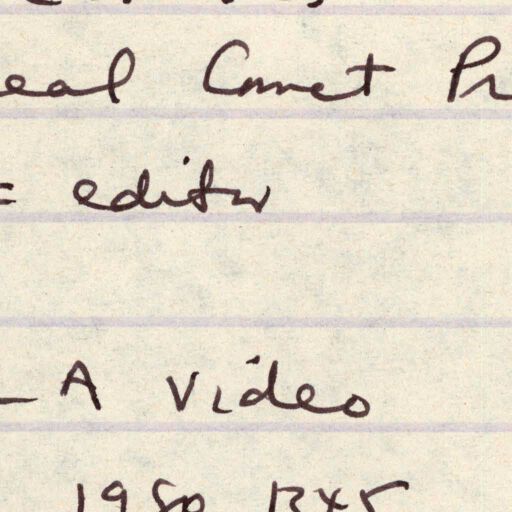 eal Comet Pr
= editor
- A Video
1980